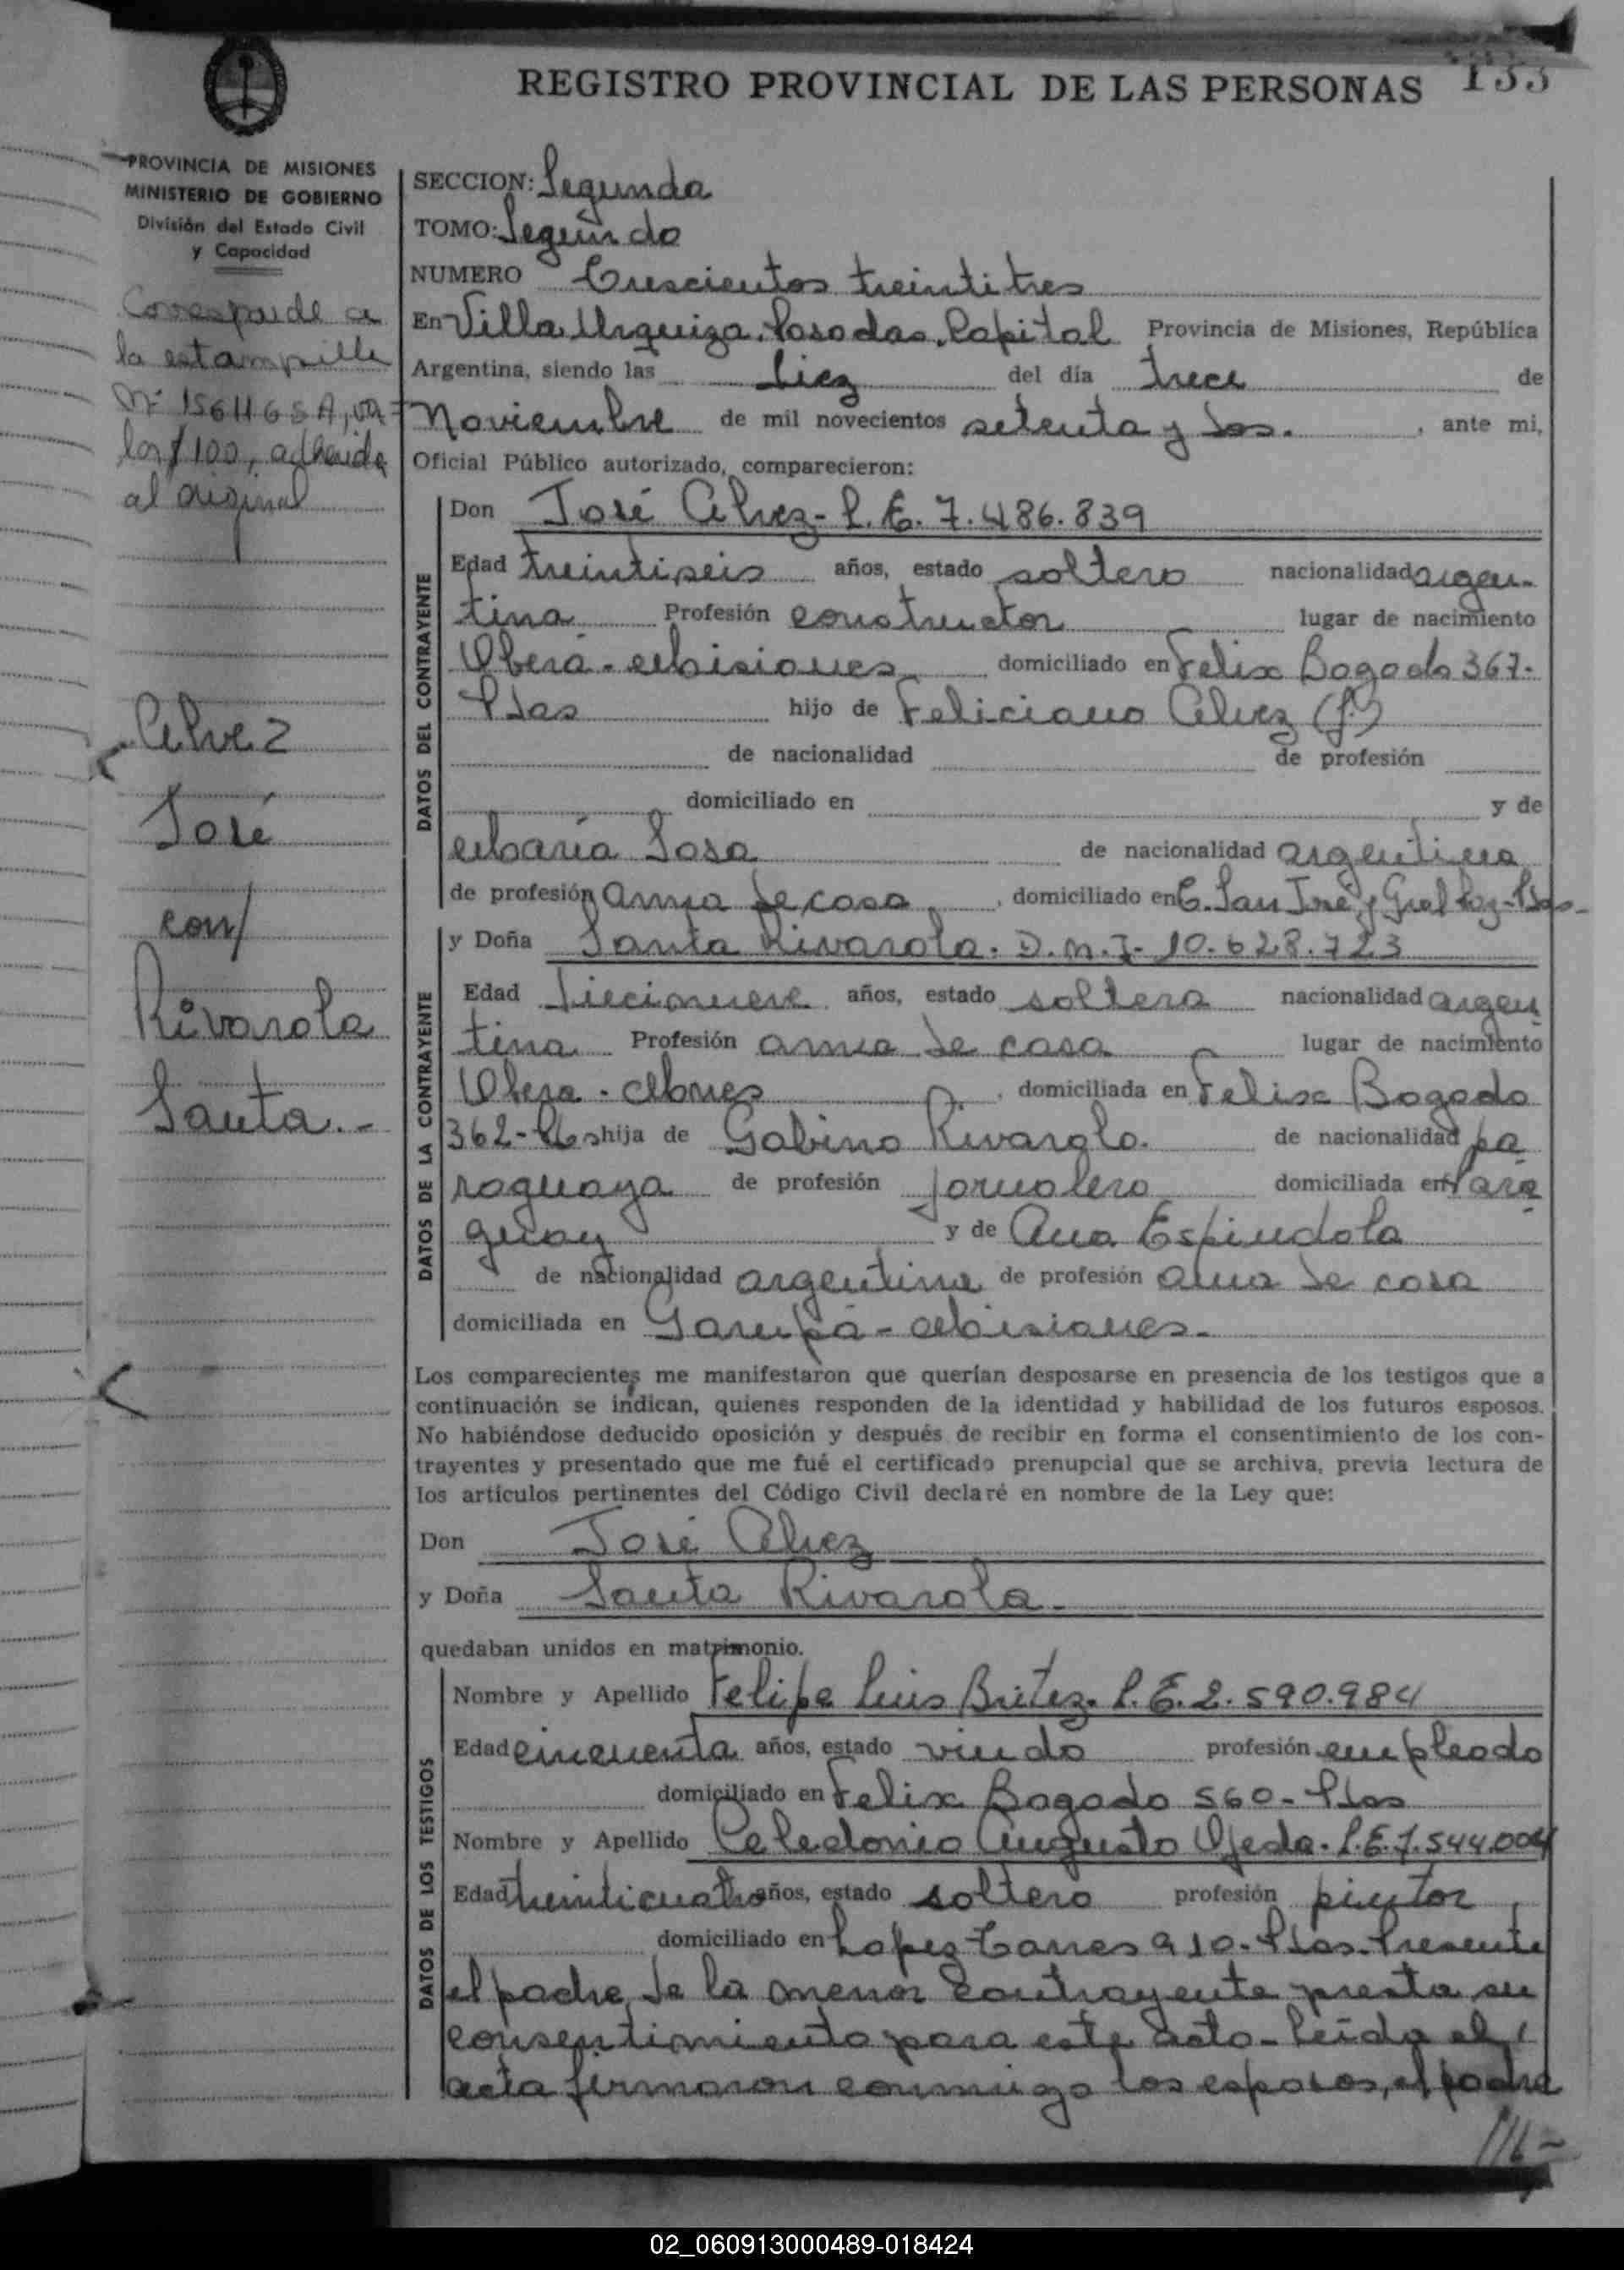 REGISTRO PROVINCIAL DE LAS PERSONAS 133
PROVINCIA DE MISIONES
MINISTERIO DE GOBIERNO
División del Estado Civil
y Capacidad
Corresponde a
la estampilla
Nº 156116 S A, va-
lor $ 100, adherida
al original
Alvez
José
con/
Rivarola
Santa.-
SECCION: Segunda
TOMO: Segundo
NUMERO Trescientos treintitres
En Villa Urquiza, Posadas, Capital Provincia de Misiones, República
Argentina, siendo las diez del día trece de
Noviembre de mil novecientos setenta y dos. , ante mi,
Oficial Público autorizado, comparecieron:
DATOS DEL CONTRAYENTE
Don José Alvez - L.E. 7.486.839
Edad treintiseis años, estado soltero nacionalidad argen-
tina Profesión constructor lugar de nacimiento
Oberá - Misiones domiciliado en Felix Bogado 367-
Pdas hijo de Feliciano Alvez (f.)
de nacionalidad de profesión
domiciliado en y de
María Sosa de nacionalidad argentina
de profesión ama de casa , domiciliado en C. San José y Gral Paz - Pdas-
DATOS DE LA CONTRAYENTE
y Doña Santa Rivarola. D.N.I- 10.628.723
Edad diecinueve años, estado soltera nacionalidad argen
tina Profesión ama de casa lugar de nacimiento
Obera - Mnes , domiciliada en Felix Bogado
362- hija de Gabino Rivarola. de nacionalidad pa
raguaya de profesión jornalero domiciliada en Para
guay y de Ana Espindola
de nacionalidad argentina de profesión ama de casa
domiciliada en Garupá - Misiones-
Los comparecientes me manifestaron que querían desposarse en presencia de los testigos que a
continuación se indican, quienes responden de la identidad y habilidad de los futuros esposos.
No habiéndose deducido oposición y después de recibir en forma el consentimiento de los con-
trayentes y presentado que me fué el certificado prenupcial que se archiva, previa lectura de
los artículos pertinentes del Código Civil declaré en nombre de la Ley que:
Don José Alvez
y Doña Santa Rivarola-
quedaban unidos en matrimonio.
DATOS DE LOS TESTIGOS
Nombre y Apellido Felipe Luis Britez. L.E. 2.590.984
Edad cincuenta años, estado viudo profesión empleado
domiciliado en Felix Bogado 560- Pdas
Nombre y Apellido Celedonio Augusto Ojeda. L.E. 7.544.004
Edad treinticuatro años, estado soltero profesión pintor
domiciliado en Lopez Torres 910- Pdas. Presente
el padre de la menor contrayente presta su
consentimiento para este acto - Leida el
acta firmaron conmigo los esposos, el padre
02_060913000489-018424